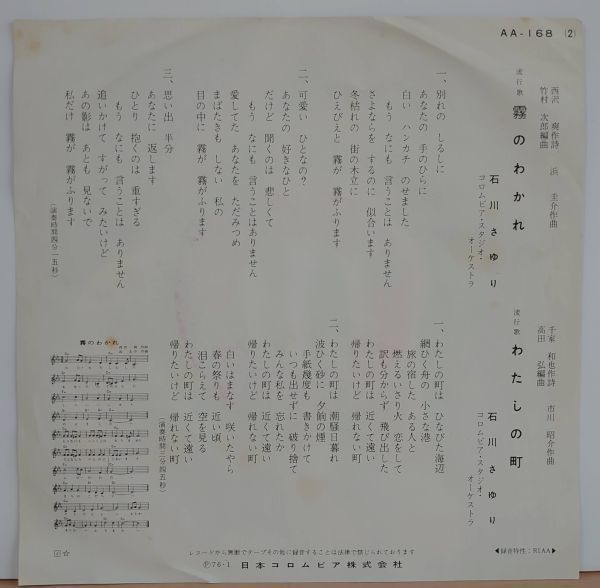 AA-168 (2)
西沢 爽作詩 浜 圭介作曲
竹村 次郎編曲
流行歌 霧のわかれ
石川さゆり
コロムビア・スタジオ・
オーケストラ
一、別れの しるしに
あなたの 手のひらに
白い ハンカチ のせました
もう なにも 言うことは ありません
さよならを するのに 似合います
冬枯れの 街の木立に
ひえびえと 霧が 霧がふります
二、可愛い ひとなの？
あなたの 好きなひと
だけど 聞くのは 悲しくて
もう なにも 言うことはありません
愛してた あなたを ただみつめ
まばたきも しない 私の
目の中に 霧が 霧がふります
三、思い出 半分
あなたに 返します
ひとり 抱くのは 重すぎる
もう なにも 言うことは ありません
追いかけて すがって みたいけど
あの影は あとも 見ないで
私だけ 霧が 霧がふります
（演奏時間四分一五秒）
千家 和也作詩 市川 昭介作曲
高田 弘編曲
流行歌 わたしの町
石川さゆり
コロムビア・スタジオ・
オーケストラ
一、わたしの町は ひなびた海辺
網ひく舟の 小さな港
旅の宿した ある人と
燃えるいさり火 恋をして
訳も分からず 飛び出した
わたしの町は 近くて遠い
帰りたいけど 帰れない町
二、わたしの町は 潮騒日暮れ
波ひく砂に 夕餉の煙
手紙幾度も 書きかけて
いつも出せずに 破り捨て
みんな私を 忘れたか
わたしの町は 近くて遠い
帰りたいけど 帰れない町
白いはまなす 咲いたやら
春の祭りも 近い頃
泪こらえて 空を見る
わたしの町は 近くて遠い
帰りたいけど 帰れない町
（演奏時間三分四五秒）
霧のわかれ
レコードから無断でテープその他に録音することは法律で禁じられております
◀録音特性：RIAA▶
Ⓟ76・1 日本コロムビア株式会社